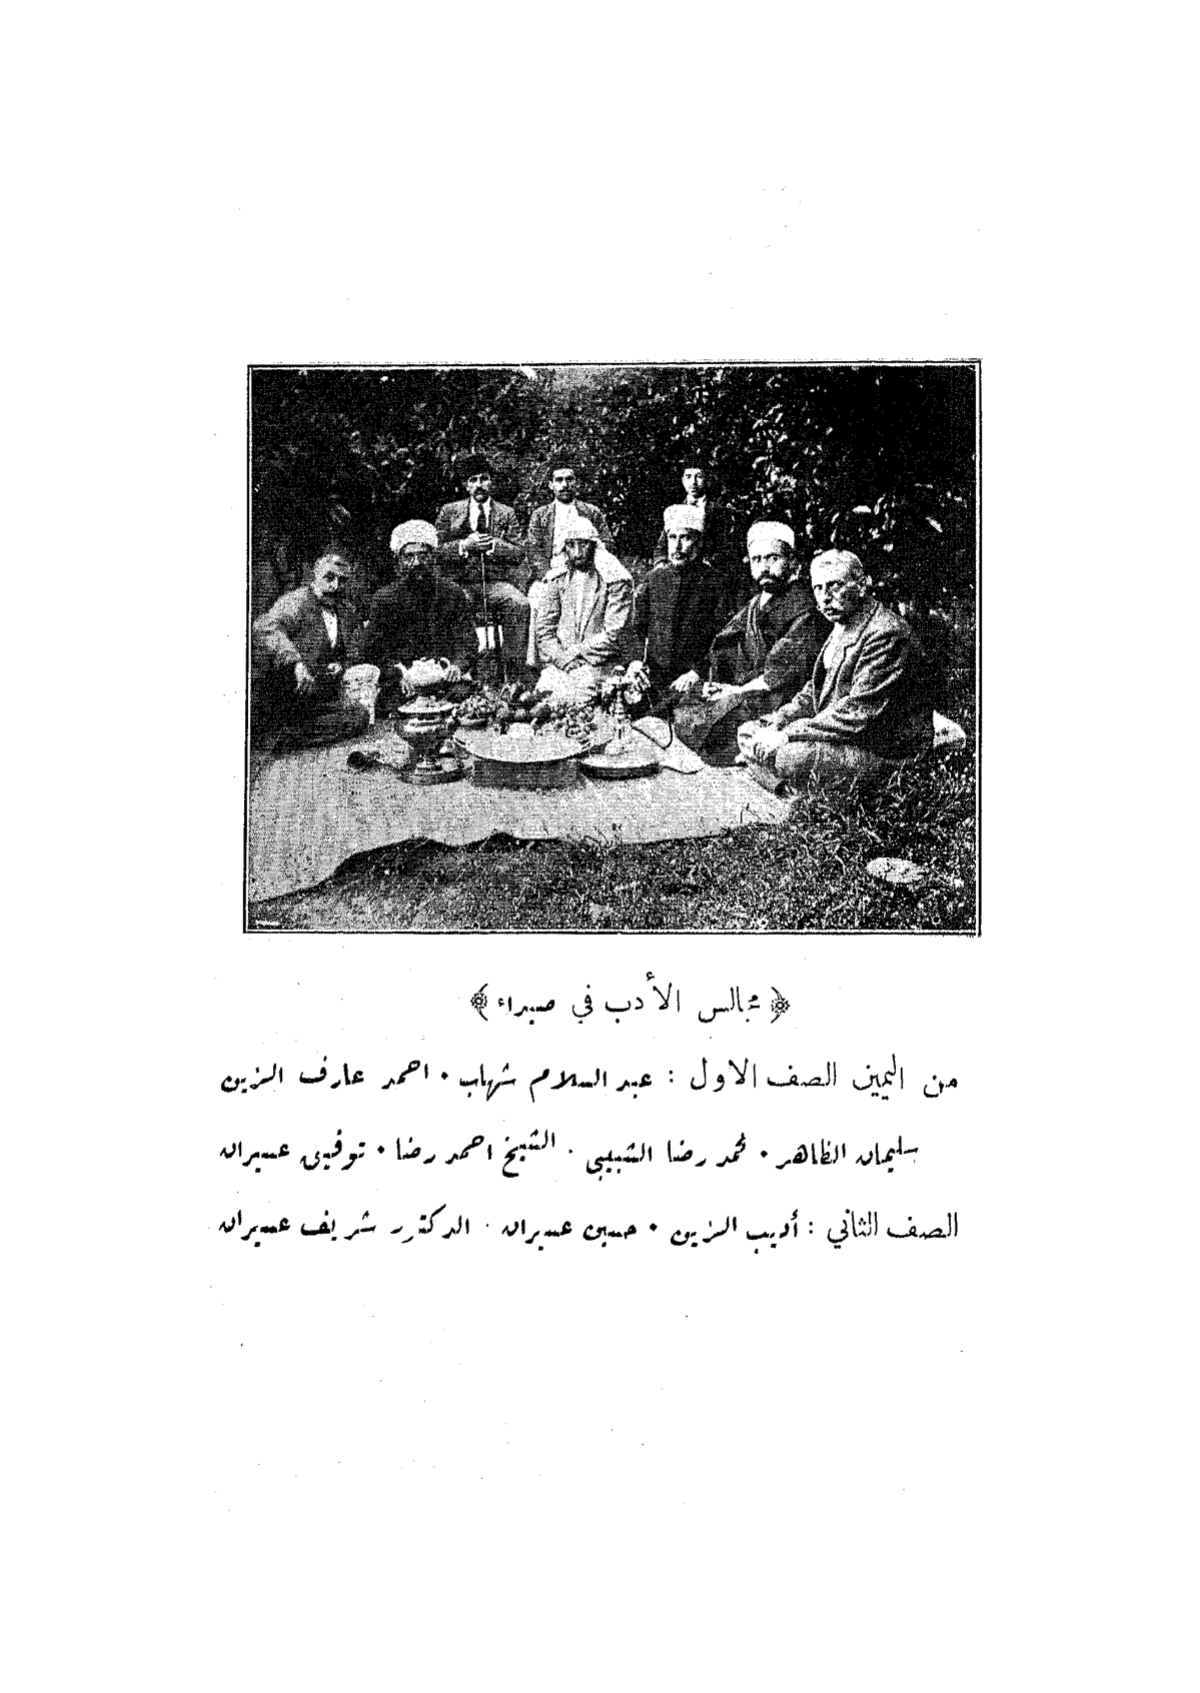 ﴿ مجالس الأدب في صيداء ﴾
من اليمين الصف الاول : عبد السلام شهاب • احمد عارف الزين
سليمان الظاهر • محمد رضا الشبيبي • الشيخ احمد رضا • توفيق عسيران
الصف الثاني : أديب الزين • حسين عسيران • الدكتور شريف عسيران